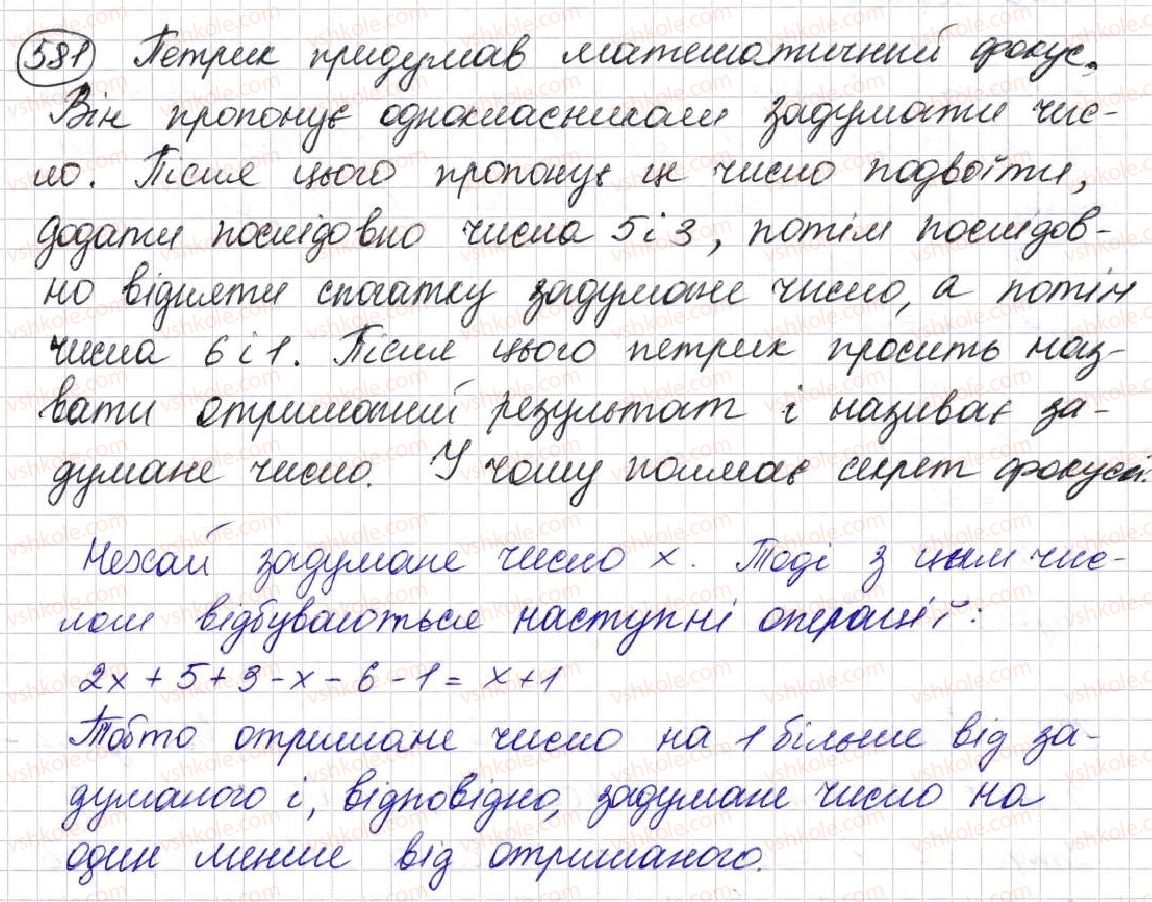 581 Петрик придумав математичний фокус.
Він пропонує однокласникам задумати чис-
ло. Після цього пропонує це число подвоїти,
додати послідовно числа 5 і 3, потім послідов-
но відняти спочатку задумане число, а потім
числа 6 і 1. Після цього петрик просить наз-
вати отриманий результат і називає за-
думане число. У чому полягає секрет фокуса.
Нехай задумане число x. Тоді з цим чис-
лом відбуваються наступні операції:
2x + 5 + 3 - x - 6 - 1 = x + 1
Тобто отримане число на 1 більше від за-
думаного і, відповідно, задумане число на
один менше від отриманого.